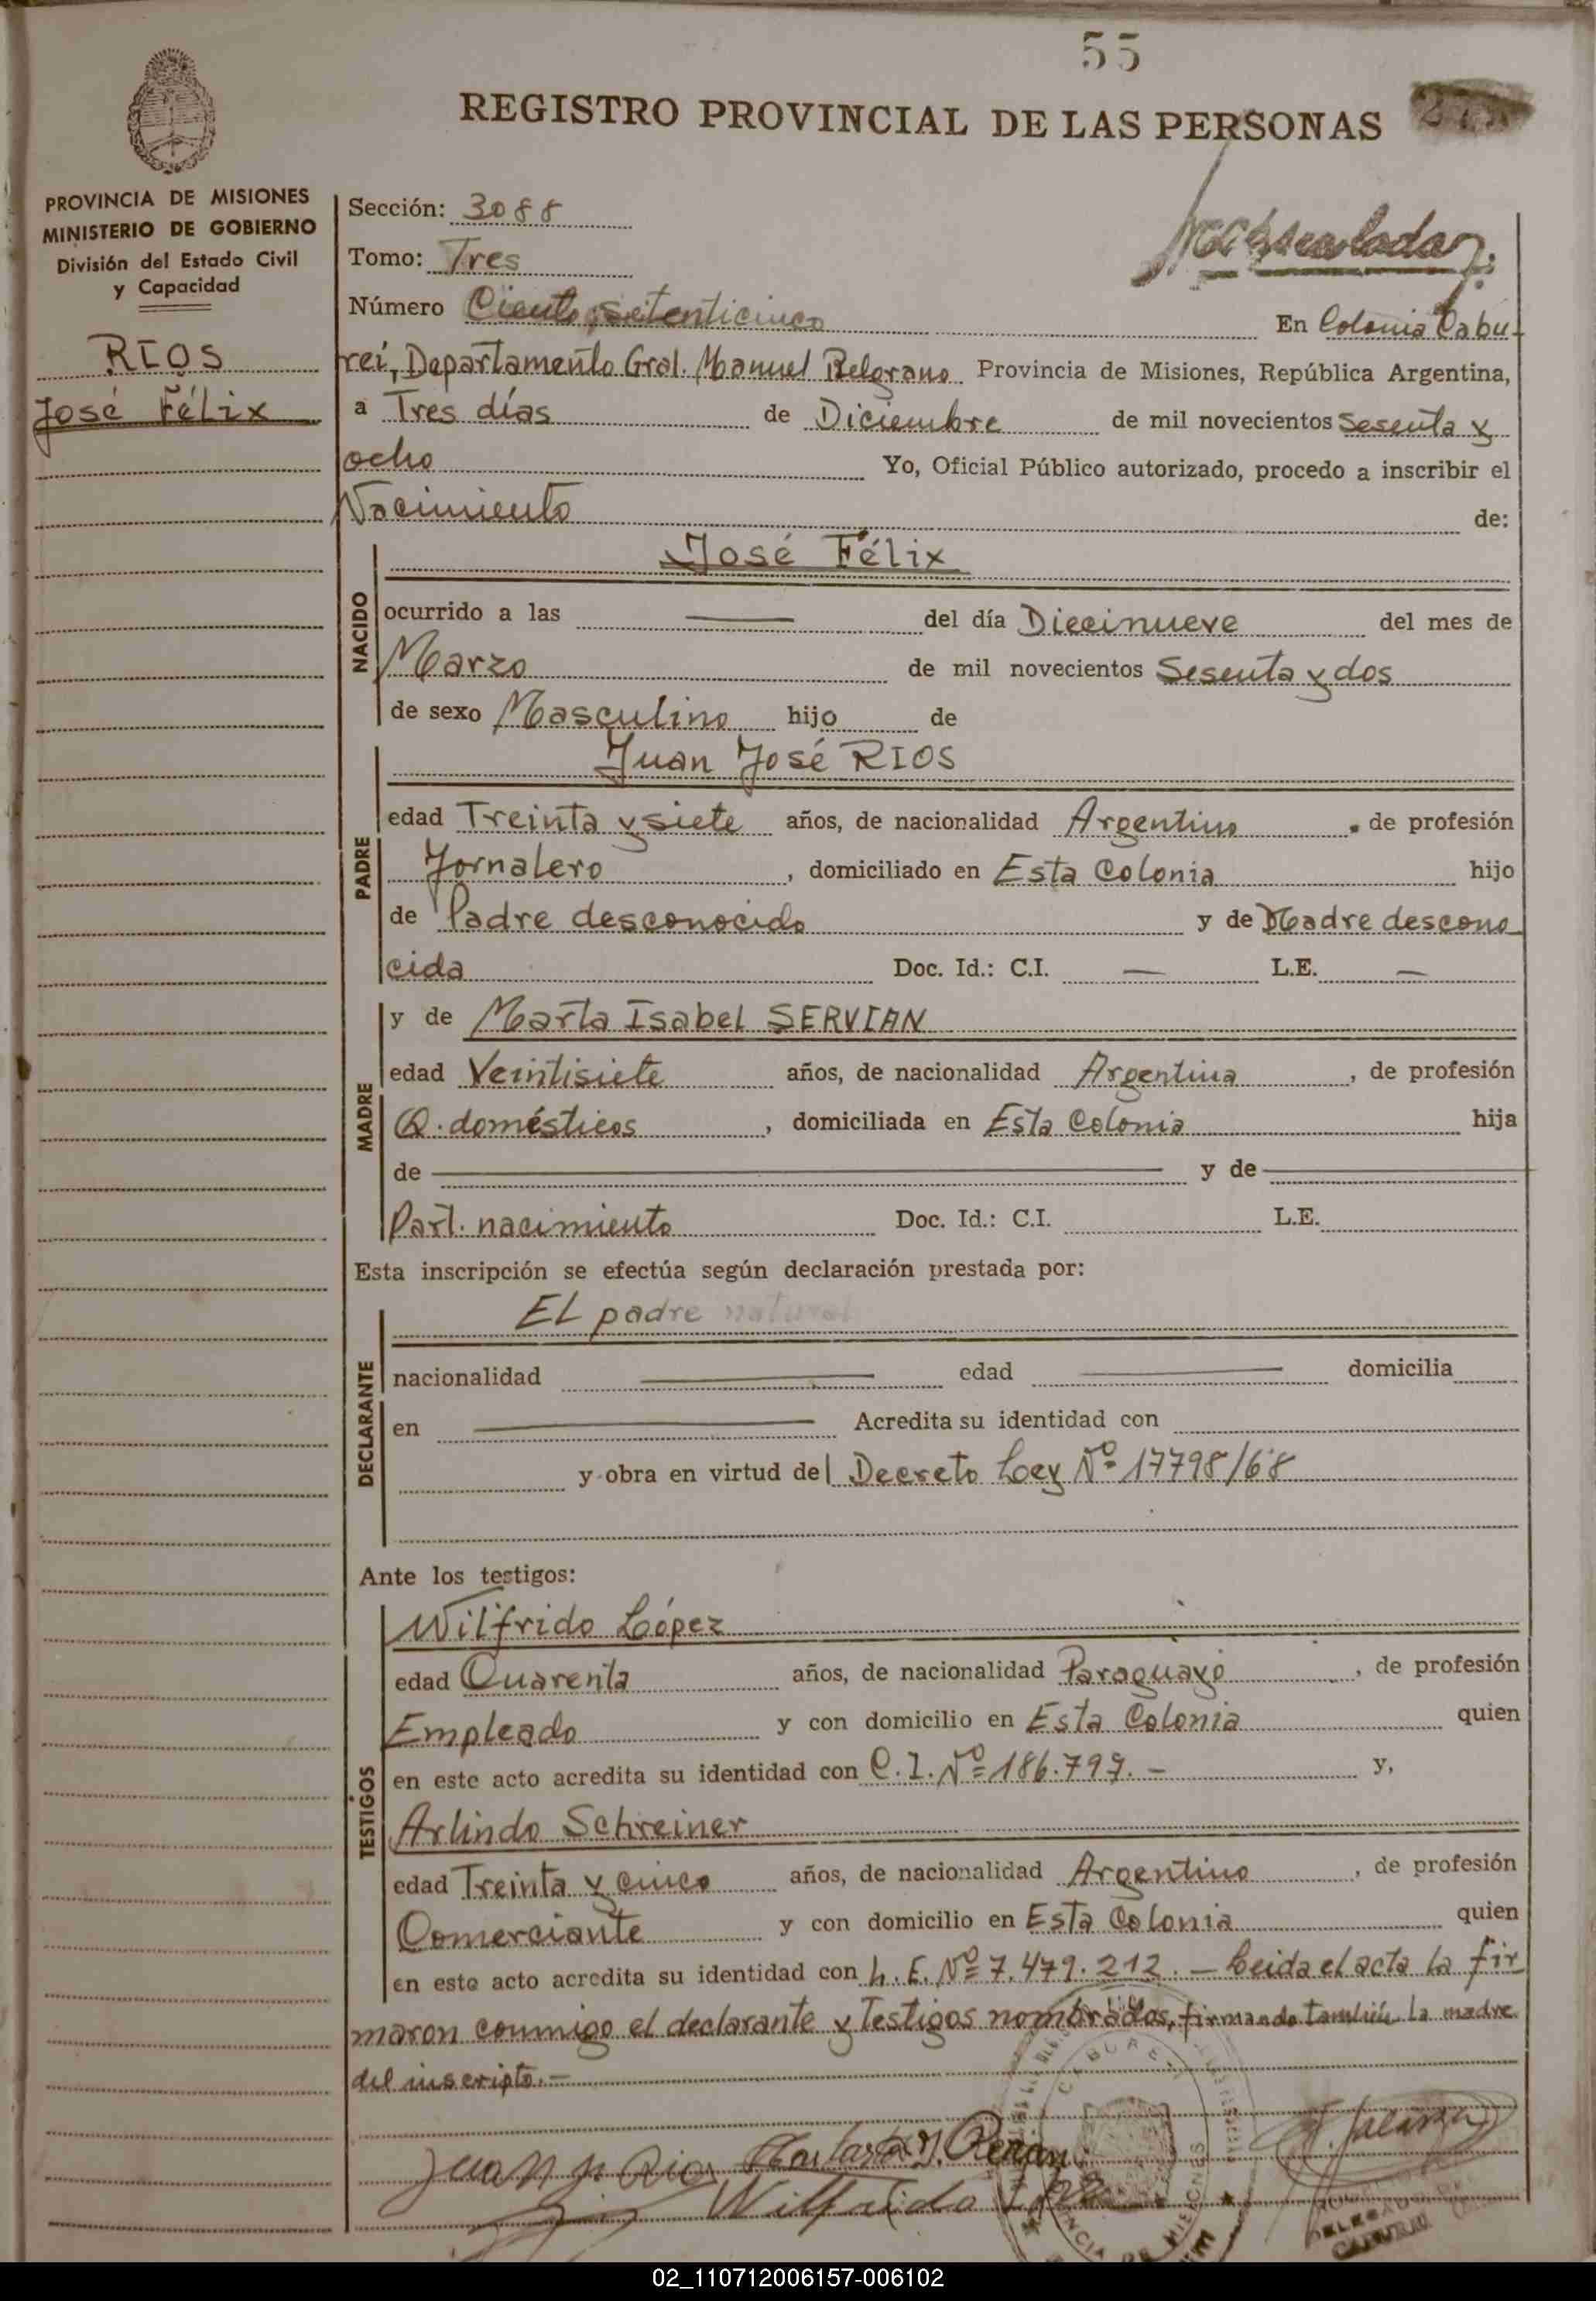 55
REGISTRO PROVINCIAL DE LAS PERSONAS
PROVINCIA DE MISIONES
MINISTERIO DE GOBIERNO
División del Estado Civil
y Capacidad
RIOS
José Félix
Sección: 3088
Tomo: Tres
Número Ciento setenticinco
En Colonia Cabu-
rei, Departamento Gral. Manuel Belgrano Provincia de Misiones, República Argentina,
a Tres días de Diciembre de mil novecientos Sesenta y
ocho Yo, Oficial Público autorizado, procedo a inscribir el
Nacimiento de:
José Félix
NACIDO
ocurrido a las del día Diecinueve del mes de
Marzo de mil novecientos Sesenta y dos
de sexo Masculino hijo de
Juan José RIOS
PADRE
edad Treinta y siete años, de nacionalidad Argentino, de profesión
Jornalero, domiciliado en Esta Colonia hijo
de Padre desconocido y de Madre descono
cida Doc. Id.: C.I. — L.E. —
MADRE
y de Marta Isabel SERVIAN
edad Veintisiete años, de nacionalidad Argentina, de profesión
Q. domésticos, domiciliada en Esta Colonia hija
de y de
Part. nacimiento Doc. Id.: C.I. L.E.
Esta inscripción se efectúa según declaración prestada por:
El padre natural
DECLARANTE
nacionalidad edad domicilia
en Acredita su identidad con
y obra en virtud del Decreto Ley Nº 17798/68
Ante los testigos:
TESTIGOS
Wilfrido López
edad Cuarenta años, de nacionalidad Paraguayo, de profesión
Empleado y con domicilio en Esta Colonia quien
en este acto acredita su identidad con C.I. Nº 186.799.- y,
Arlindo Schreiner
edad Treinta y cinco años, de nacionalidad Argentino, de profesión
Comerciante y con domicilio en Esta Colonia quien
en este acto acredita su identidad con L.E. Nº 7.479.212.- Leida el acta la fir
maron conmigo el declarante y Testigos nombrados, firmando también la madre
del inscripto.-
Juan J Rios
Wilfrido
02_110712006157-006102